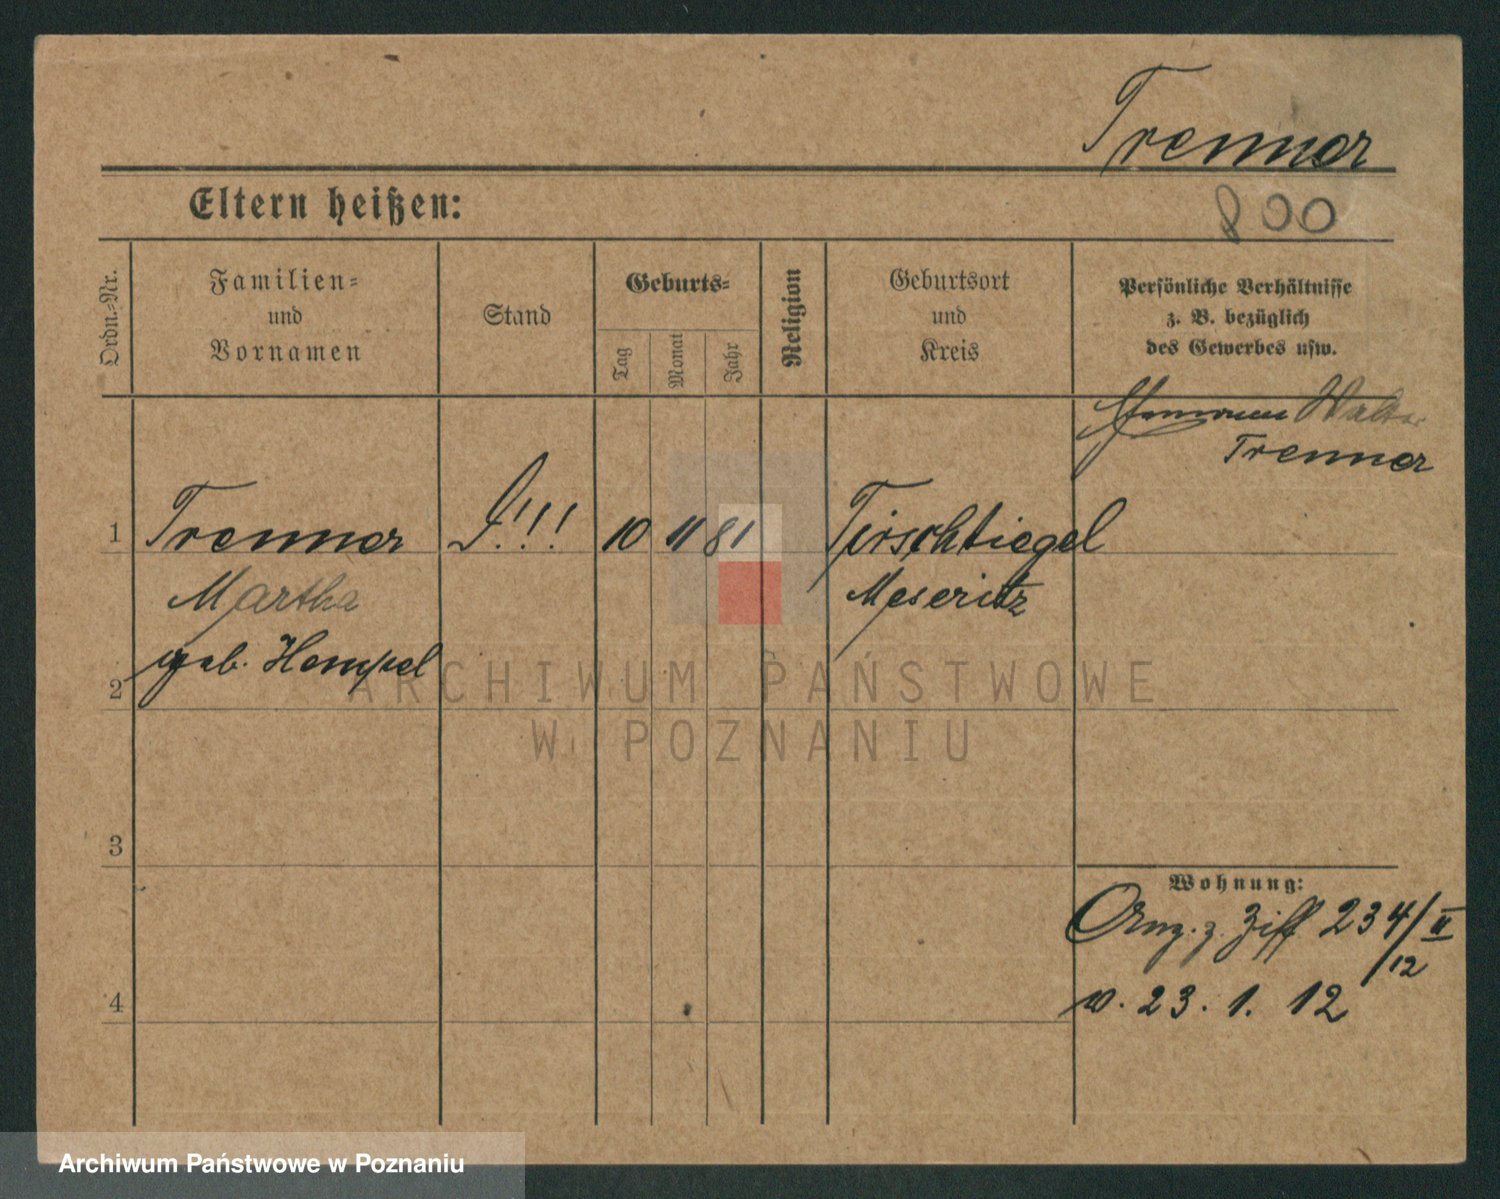 Trenner
Eltern heißen:
800
Ordn.-Nr.
Familien-
und
Vornamen
Stand
Geburts-
Tag
Monat
Jahr
Religion
Geburtsort
und
Kreis
Persönliche Verhältnisse
z. B. bezüglich
des Gewerbes usw.
Walter
Trenner
1 Trenner !!! 10 11 81 Tirschtiegel
Martha Meseritz
geb. Hempel
2
ARCHIWUM PAŃSTWOWE
W POZNANIU
3
Wohnung:
Anz. z. Ziff 234/II
/12
v. 23. 1. 12
4
Archiwum Państwowe w Poznaniu